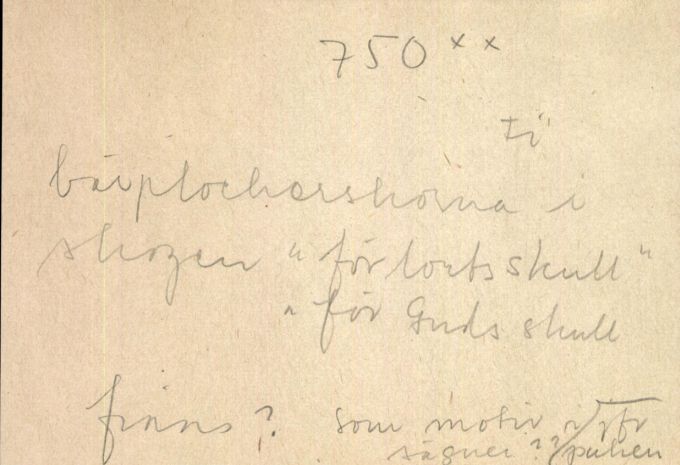 750 xx
ti
bärplockerskorna i
skogen "för lortsskull"
" för Guds skull
finns? som motiv i jfr
sägner??